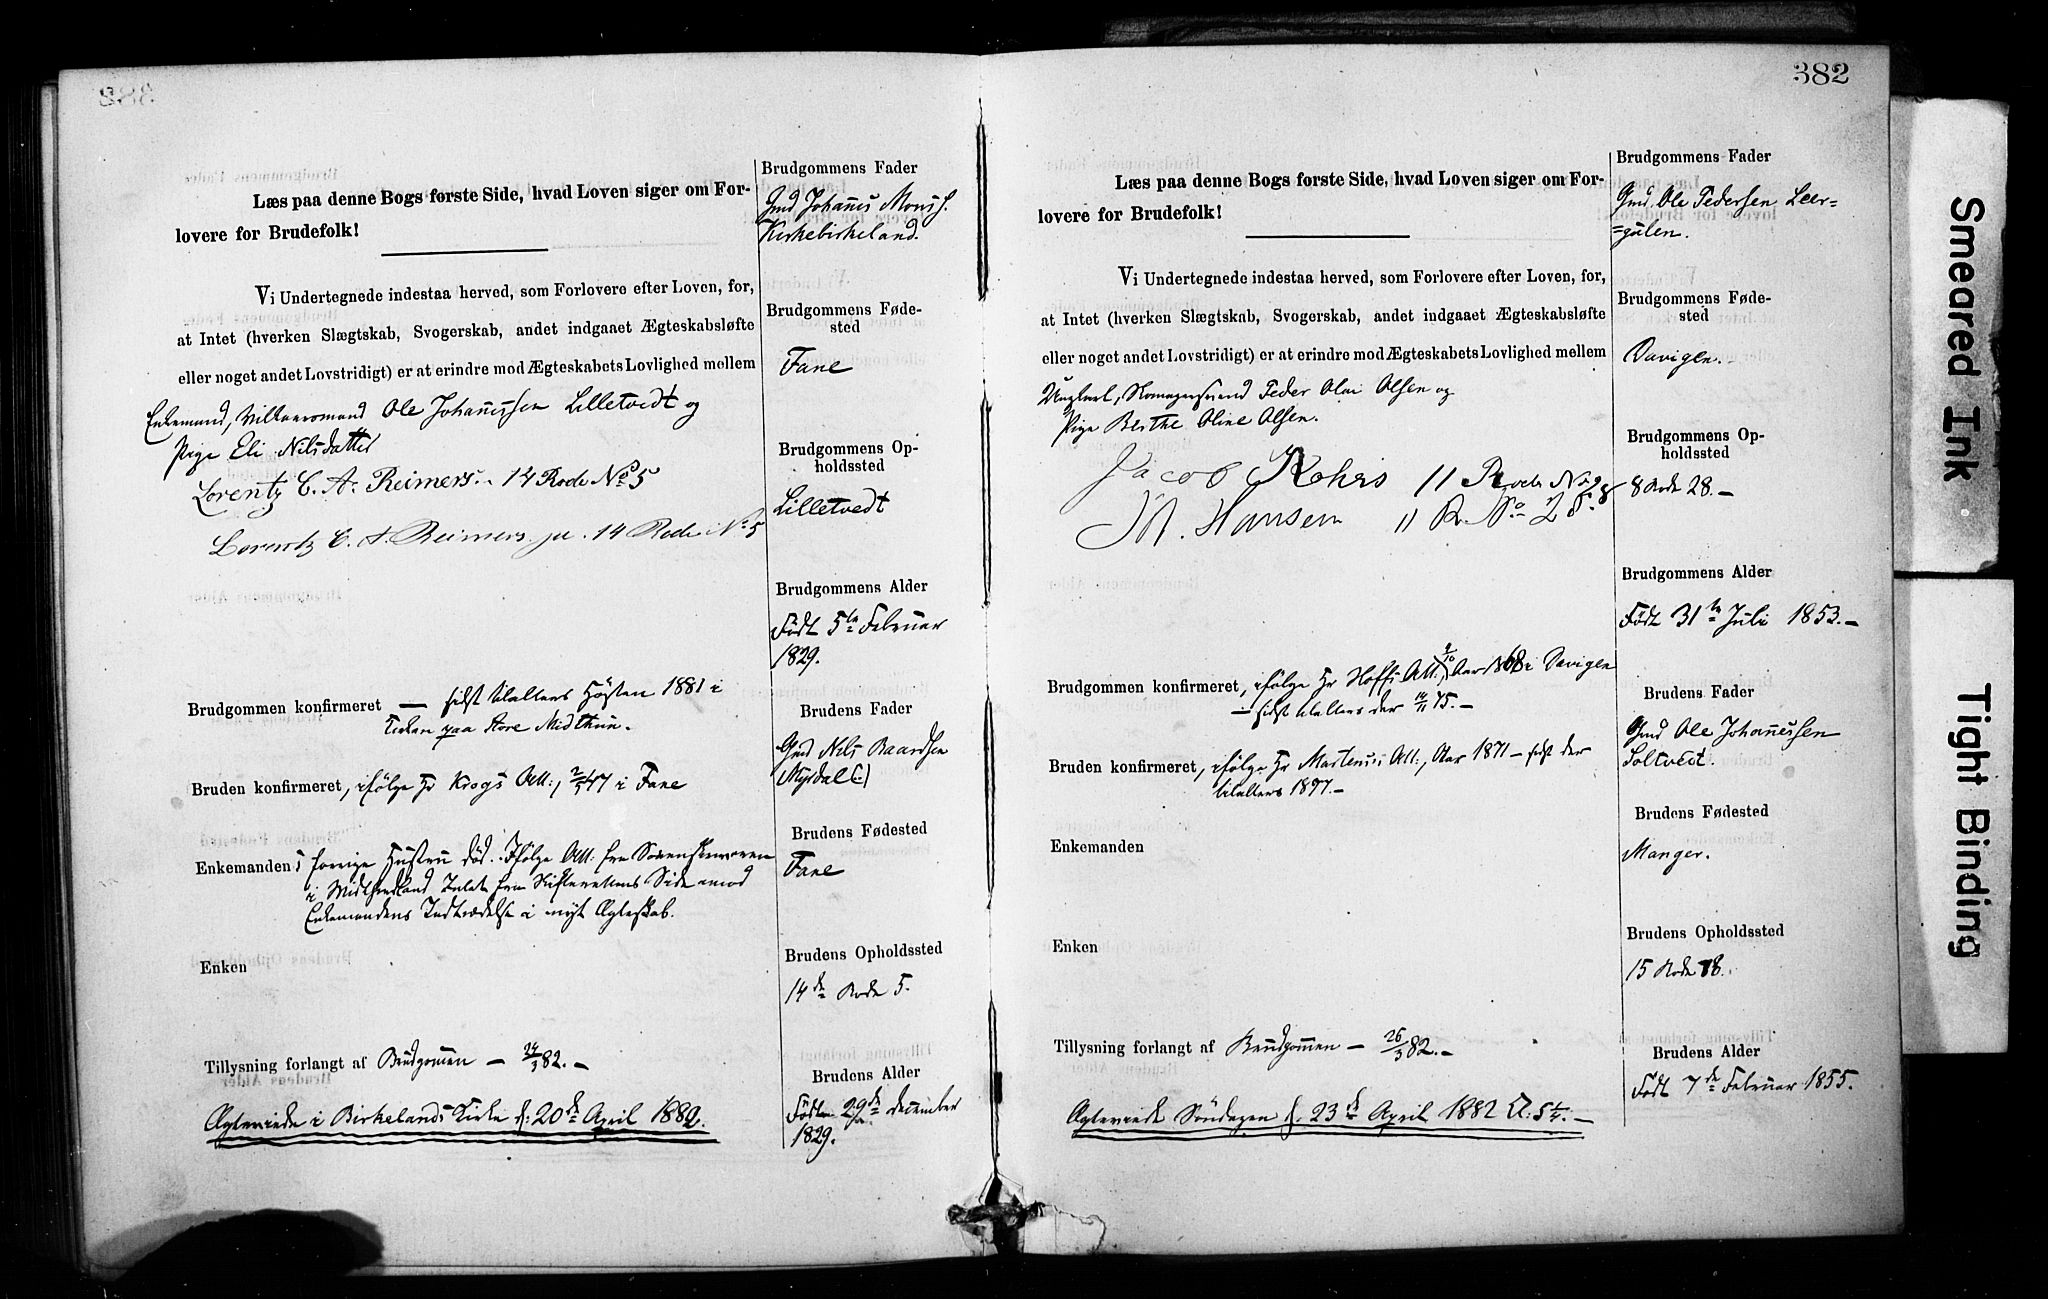 Læs paa denne Bogs første Side, hvad Loven siger om For-
lovere for Brudefolk!
Vi Undertegnede indestaa herved, som Forlovere efter Loven, for,
at Intet (hverken Slægtskab, Svogerskab, andet indgaaet Ægteskabsløfte
eller noget andet Lovstridigt) er at erindre mod Ægteskabets Lovlighed mellem
Enkemand, Ole Johannessen Lilletvedt og
Pige Eli Nilsdatter
Lorentz C. A. Reimers. 14 Rode No 5
Lorentz C. A. Reimers ju. 14 Rode No 5
Brudgommen konfirmeret — sidst til alters Høsten 1881 i
Kirken paa Store Midthun.
Bruden konfirmeret, ifølge Hr Krogs Att:, 2/5 47 i Fane
Enkemandens forrige Hustru död. Ifølge Att: fra Sorenskriveren
i Midthordland Intet fra Skifterettens Side imod
Enkemandens Indtrædelse i nyt Ægteskab.
Enken
Tillysning forlangt af Brudgommen — 24/3 82. —
Ægteviede i Birkelands Kirke d: 20de April 1882.
Brudgommens Fader
Gmd Johannes Monss.
Kirkebirkeland.
Brudgommens Føde-
sted
Fane
Brudgommens Op-
holdssted
Lilletvedt
Brudgommens Alder
Födt 5te Februar
1829.
Brudens Fader
Gmd Nils Baardsen
Myrdal (:)
Brudens Fødested
Fane
Brudens Opholdssted
14de Rode 5.
Brudens Alder
Födt 29de December
1829.
382
Læs paa denne Bogs første Side, hvad Loven siger om For-
lovere for Brudefolk!
Vi Undertegnede indestaa herved, som Forlovere efter Loven, for,
at Intet (hverken Slægtskab, Svogerskab, andet indgaaet Ægteskabsløfte
eller noget andet Lovstridigt) er at erindre mod Ægteskabets Lovlighed mellem
Ungkarl, Skomagersvend Peder Olai Olsen og
Pige Berthe Oline Olsen.
Jacob Rohrs 11 Rode No 28
M. Hansen 11 R. No 28
Brudgommen konfirmeret, ifølge Hr Hoffs Att:, Aar 1868 i Davigen
— sidst til alters der 14/11 75. —
Bruden konfirmeret, ifølge Hr Martenss Att:, Aar 1871 — sidst der
til alters 1877. —
Enkemanden
Enken
Tillysning forlangt af Brudgommen — 26/3 82. —
Ægteviede Söndagen d. 23de April 1882 Kl: 5 1/4. —
Brudgommens Fader
Gmd. Ole Pedersen Leer=
=gulen.
Brudgommens Føde-
sted
Davigen.
Brudgommens Op-
holdssted
8 Rode 28. —
Brudgommens Alder
Födt 31te Juli 1853. —
Brudens Fader
Gmd Ole Johannessen
Soltvedt.
Brudens Fødested
Manger.
Brudens Opholdssted
15 Rode 18.
Brudens Alder
Födt 7de Februar 1855.
Smeared Ink
Tight Binding